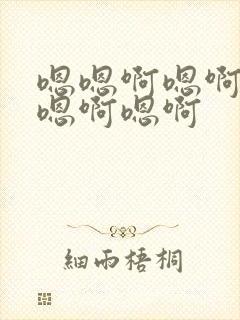 嗯嗯啊嗯啊
嗯啊嗯啊
细雨梧桐